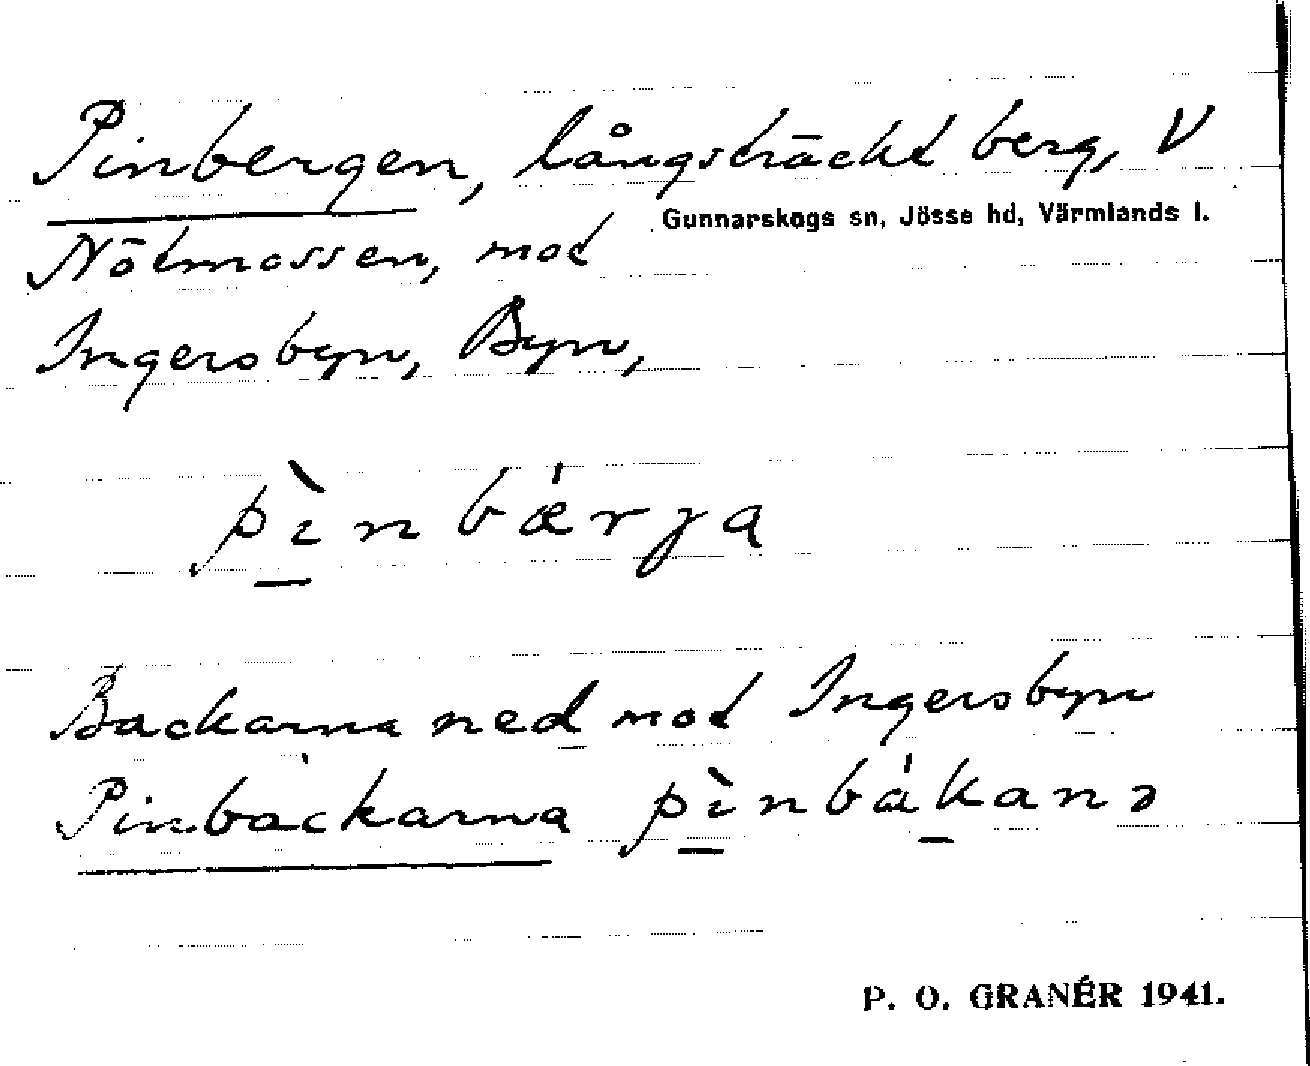 Pinbergen, långsträckt berg, V
Gunnarskogs sn, Jösse hd, Värmlands l.
Nötmossen, mot
Ingersbyn, Byn,
pìnbǽrja
Backarna ned mot Ingersbyn
Pinbackarna pìnbákanə
P. O. GRANÉR 1941.